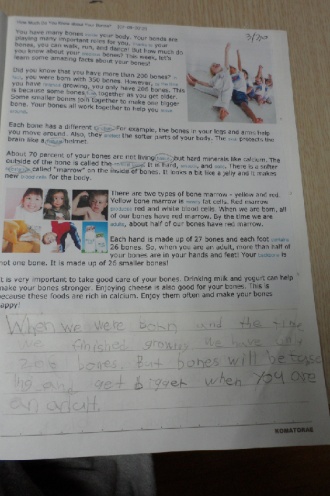 You have many bones your body. Your bones are
playing many important roles for you. your
bones, you can walk, run, and dance! But how much do
you know about your bones? This week, let's
learn some amazing facts about your bones!
Did you know that you have more than 200 bones?
you were born with 350 bones. However,
you have growing, you only have 206 bones. This
is because some bones together as you get older.
Some smaller bones join together to make one bigger
bone. Your bones all work together to help you
Each bone has a different For example, the bones in your legs and arms help
you move around. Also, they protect the softer parts of your body. The protects the
brain like a helmet.
About 70 percent of your bones are not living but hard minerals like calcium. The
outside of the bone is called the It is hard, and There is a softer
called "marrow" on the inside of bones. It looks a bit like a jelly and it makes
new blood cells for the body.
There are two types of bone marrow - yellow and red.
Yellow bone marrow is fat cells. Red marrow
red and white blood cells. When we are born, all
of our bones have red marrow. By the time we are
adults, about half of our bones have red marrow.
Each hand is made up of 27 bones and each foot contains
26 bones. So, when you are an adult, more than half of
your bones are in your hands and feet! Your backbone is
not one bone. It is made up of 26 smaller bones!
It is very important to take good care of your bones. Drinking milk and yogurt can help
make your bones stronger. Enjoying cheese is also good for your bones. This is
because these foods are rich in calcium. Enjoy them often and make your bones
happy!
When we were born and the time
we finished growing we have
bones. But bones will be
and get bigger when you are
an adult.